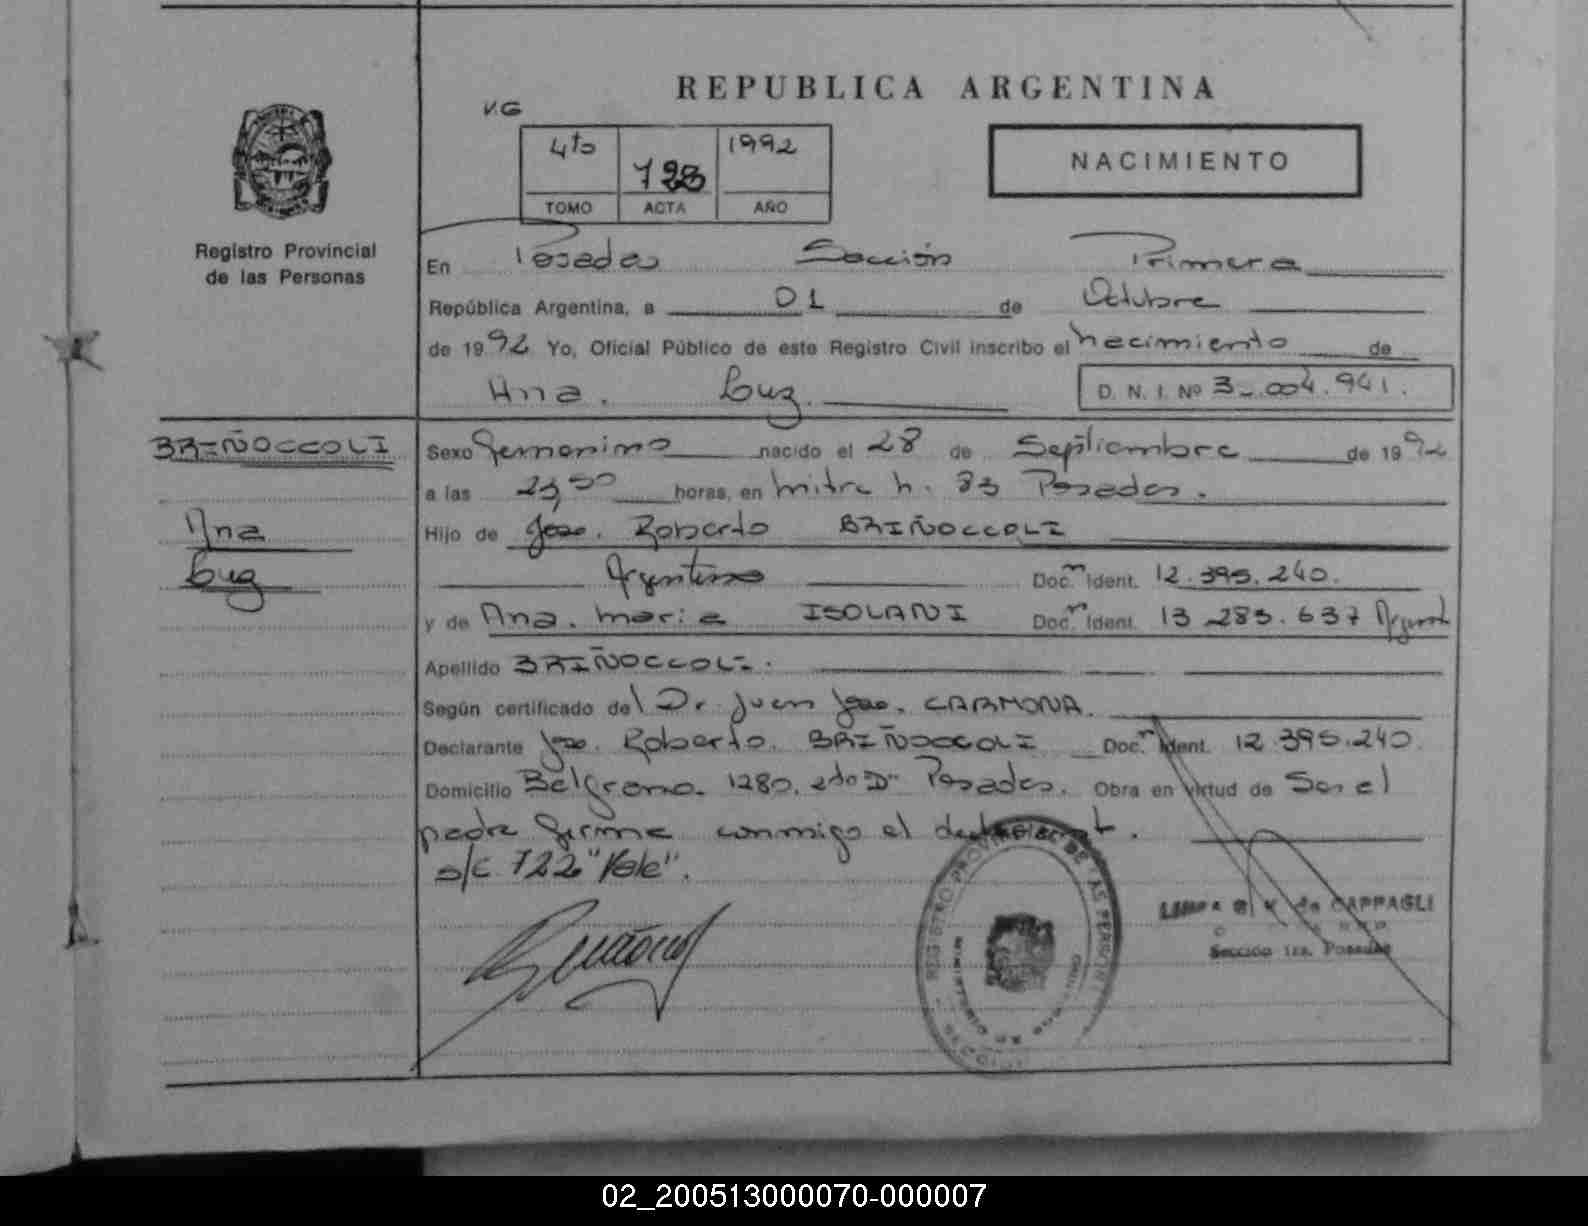 REPUBLICA ARGENTINA
V.G
4to 1992
TOMO ACTA AÑO
NACIMIENTO
Registro Provincial
de las Personas
En Posadas Sección Primera
República Argentina, a 01 de Octubre
de 1992 Yo, Oficial Público de este Registro Civil inscribo el nacimiento de
Ana. Luz. D. N. I. Nº
BRIÑOCCOLI
Ana
Luz
Sexo femenino nacido el 28 de Septiembre de 1992
a las horas, en mitre n. 83 Posadas.
Hijo de Jose. Roberto BRIÑOCCOLI
Argentino Doc. Ident. 12.395.240.
y de Ana. maria ISOLANI Doc. Ident. 13.283.637
Apellido BRIÑOCCOLI.
Según certificado del Dr. Juan Jose. CARMONA.
Declarante Jose. Roberto. BRIÑOCCOLI Doc. Ident. 12.395.240
Domicilio Belgrano. 1280. 2do D" Posadas. Obra en virtud de Ser el
padre firma conmigo el declarant.
s/c 722 "Vale".
REGISTRO PROVINCIAL DE LAS PERSONAS
de CAPPAGLI
Sección 1ra. Posadas
02_200513000070-000007